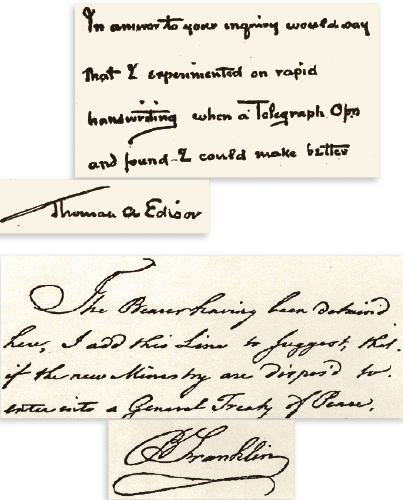 In answer to your inquiry would say
that I experimented on rapid
handwriting when a Telegraph Opr
and found I could make better
Thomas A Edison
The Bearer having been detain'd
here, I add this Line to suggest, that
if the new Ministry are dispos'd to
enter into a General Treaty of Peace,
B Franklin